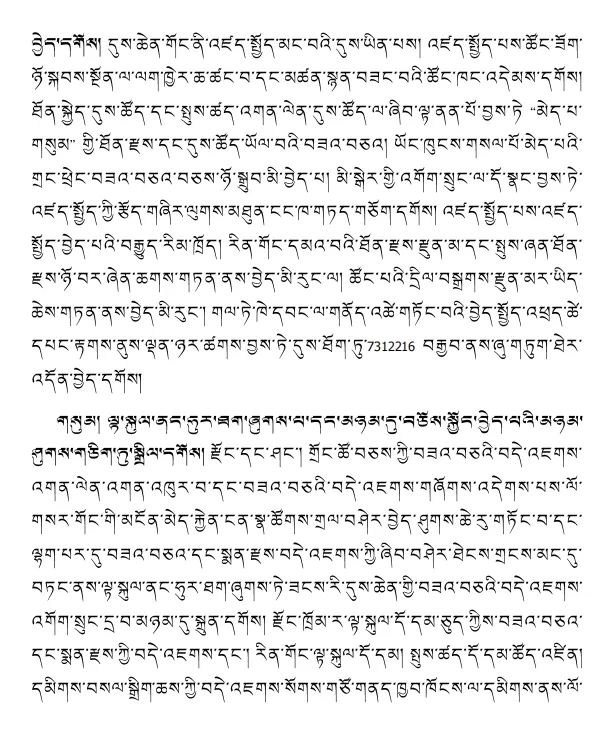 བྱེད་དགོས། དུས་ཆེན་གོང་ནི་འཛད་སྤྱོད་མང་བའི་དུས་ཡིན་པས། འཛད་སྤྱོད་པས་ཚོང་ཟོག་
ཉོ་སྐབས་སྔོན་ལ་ལག་ཁྱེར་ཆ་ཚང་བ་དང་མཚན་སྙན་བཟང་བའི་ཚོང་ཁང་འདེམས་དགོས།
ཐོན་སྐྱེད་དུས་ཚོད་དང་སྤུས་ཚད་འགན་ལེན་དུས་ཚོད་ལ་ཞིབ་ལྟ་ནན་པོ་བྱས་ཏེ་ “མེད་པ་
གསུམ” གྱི་ཐོན་རྫས་དང་དུས་ཚོད་ཡོལ་བའི་བཟའ་བཅའ། ཡོང་ཁུངས་གསལ་པོ་མེད་པའི་
གྲང་ཕྲེང་བཟའ་བཅའ་བཅས་ཉོ་སྒྲུབ་མི་བྱེད་པ། མི་སྒེར་གྱི་འགོག་སྲུང་ལ་དོ་སྣང་བྱས་ཏེ་
འཛད་སྤྱོད་ཀྱི་རྩོད་གཞིར་ལུགས་མཐུན་ངང་ཁ་གཏད་གཅོག་དགོས། འཛད་སྤྱོད་པས་འཛད་
སྤྱོད་བྱེད་པའི་བརྒྱུད་རིམ་ཁྲོད། རིན་གོང་དམའ་བའི་ཐོན་རྫས་རྫུན་མ་དང་སྤུས་ཞན་ཐོན་
རྫས་ཉོ་བར་ཞེན་ཆགས་གཏན་ནས་བྱེད་མི་རུང་ལ། ཚོང་པའི་དྲིལ་བསྒྲགས་རྫུན་མར་ཡིད་
ཆེས་གཏན་ནས་བྱེད་མི་རུང་། གལ་ཏེ་ཁེ་དབང་ལ་གནོད་འཚེ་གཏོང་བའི་བྱེད་སྤྱོད་འཕྲད་ཚེ་
དཔང་རྟགས་ནུས་ལྡན་ཉར་ཚགས་བྱས་ཏེ་དུས་ཐོག་ཏུ་7312216 བརྒྱབ་ནས་ཞུ་གཏུག་ཐེར་
འདོན་བྱེད་དགོས།
གསུམ། ལྟ་སྐུལ་ནང་ཧུར་ཐག་ཞུགས་པ་དང་མཉམ་དུ་བཅོས་སྐྱོང་བྱེད་པའི་མཉམ་
ཤུགས་གཅིག་ཏུ་སྒྲིལ་དགོས། རྫོང་དང་ཤང་། གྲོང་ཚོ་བཅས་ཀྱི་བཟའ་བཅའི་བདེ་འཇགས་
འགན་ལེན་འགན་འཁུར་བ་དང་བཟའ་བཅའི་བདེ་འཇགས་གཞོགས་འདེགས་པས་ལོ་
གསར་གོང་གི་མངོན་མེད་རྐྱེན་ངན་སྣ་ཚོགས་གྲལ་བཤེར་བྱེད་ཤུགས་ཆེ་རུ་གཏོང་བ་དང་
ལྷག་པར་དུ་བཟའ་བཅའ་དང་སྨན་རྫས་བདེ་འཇགས་ཀྱི་ཞིབ་བཤེར་ཐེངས་གྲངས་མང་དུ་
བཏང་ནས་ལྟ་སྐུལ་ནང་ཧུར་ཐག་ཞུགས་ཏེ་ཟངས་རི་དུས་ཆེན་གྱི་བཟའ་བཅའི་བདེ་འཇགས་
འགོག་སྲུང་དྲ་བ་མཉམ་དུ་སྐྲུན་དགོས། རྫོང་ཁྲོམ་ར་ལྟ་སྐུལ་དོ་དམ་ཅུད་ཀྱིས་བཟའ་བཅའ་
དང་སྨན་རྫས་ཀྱི་བདེ་འཇགས་དང་། རིན་གོང་ལྟ་སྐུལ་དོ་དམ། སྤུས་ཚད་དོ་དམ་ཚོད་འཛིན།
དམིགས་བསལ་སྒྲིག་ཆས་ཀྱི་བདེ་འཇགས་སོགས་གཙོ་གནད་ཁྱབ་ཁོངས་ལ་དམིགས་ནས་ལོ་